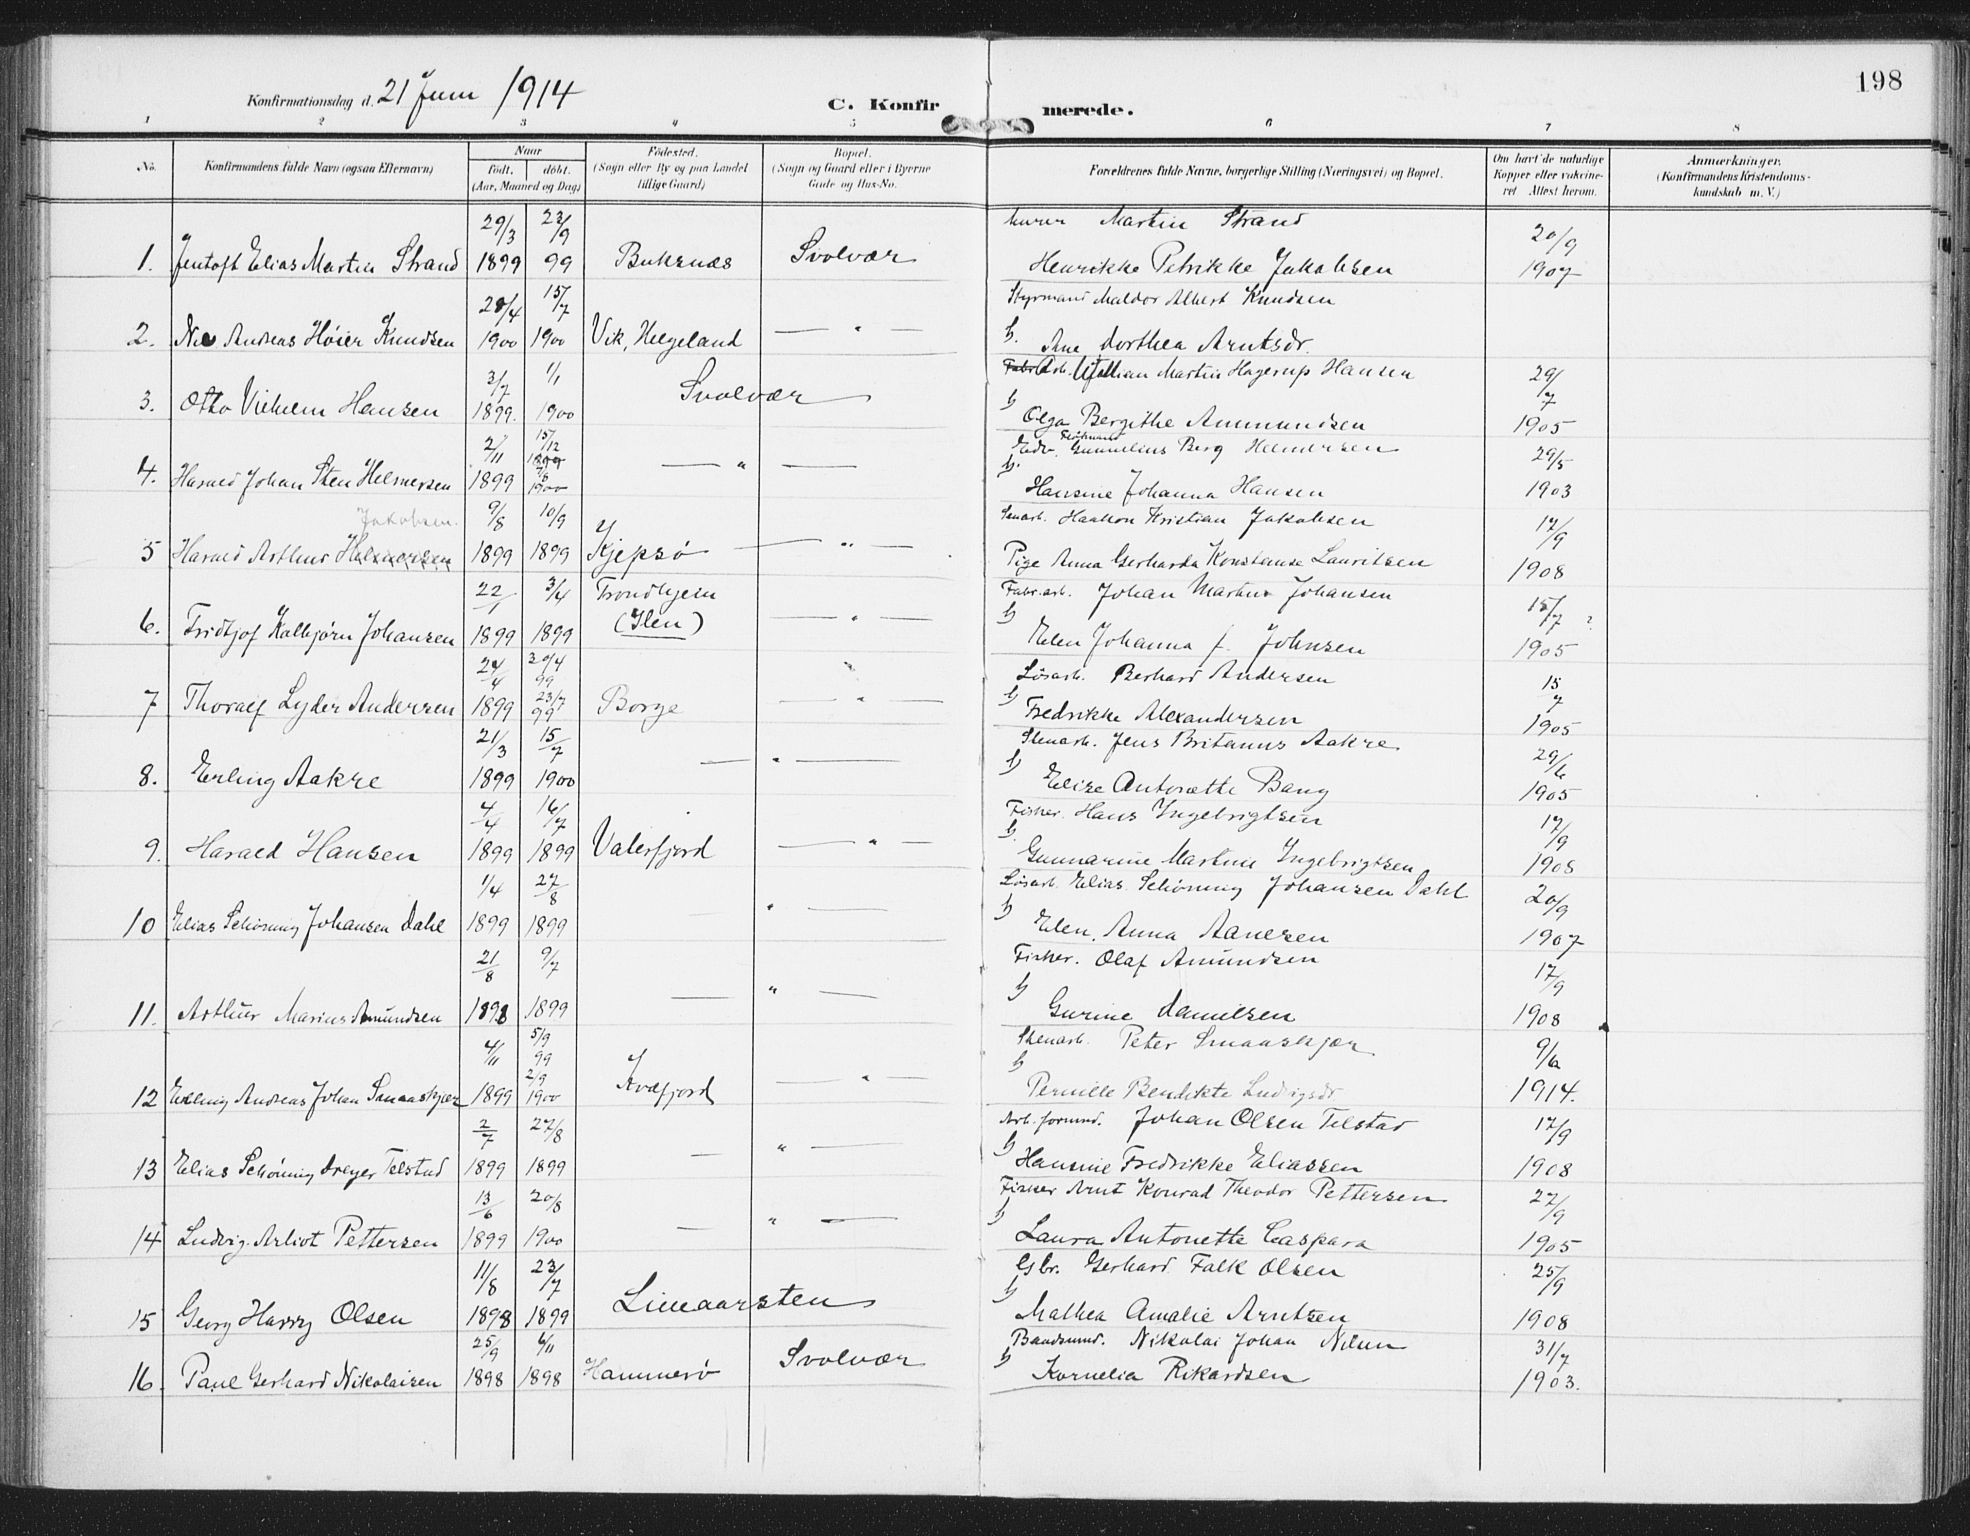 198
Konfirmationsdag d. 21 Juni 1914
C. Konfirmerede.
1 2 3 4 5 6 7 8
No. Konfirmandens fulde Navn (ogsaa Efternavn) Naar født. døbt. (Aar, Maaned og Dag) Födested. (Sogn eller By og paa Landet tillige Gaard) Bopæl. (Sogn og Gaard eller i Byerne Gade og Hus-No. Forældrenes fulde Navne, borgerlige Stilling (Næringsvei) og Bopæl. Om havt de naturlige Kopper eller vakcineret Attest herom. Anmærkninger. (Konfirmandens Kristendomskundskab m. V.)
29/3 23/9 Martin Strand 20/9
1. Jentoft Elias Martin Strand 1899 99 Buksnæs Svolvær Henrikke Petrikke Jakobsen 1907
20/4 15/7 Styrmand Maldor Albert Knudsen
2. Andreas Høier Knudsen 1900 1900 Vik, Helgeland — " — Ane Dorthea Arntsdr.
3/7 1/1 Arb. William Martin Hagerup Hansen 29/7
3. Otto Vilhelm Hansen 1899. 1900 Svolvær — Olga Bergithe Ammundsen 1905
2/11 15/12 1899 Gunnelius Berg Helmersen 29/5
4. Harald Johan Sten Helmersen 1899 1900 — " — Hansine Johanna Hansen 1903
Jakobsen. 9/8 10/9 Haakon Kristian Jakobsen 17/9
5 Harald Arthur Helmersen 1899 1899 Kjepsø — " — Pige Anna Gerharda Konstanse Lauritsen 1908
22/1 3/4 Trondhjem Fabr.arb. Johan Martin Johansen 15/7 ?
6. Fridtjof Kolbjørn Johansen 1899 1899 (Ilen) — " — Elen Johanna f. Johnsen 1905
24/4 30/4 99 Løsarb. Berhard Andersen 15/7
7 Thoralf Lyder Andersen 1899 23/7 99 Borge — " — Fredrikke Alexandersen 1905
21/3 15/7 Stenarb. Jens Britanus Aakre 29/6
8. Erling Aakre 1899 1900 — " — Elise Antonette Bang 1905
4/4 16/7 Fisker. Hans Ingebrigtsen 17/9
9. Harald Hansen 1899 1899 Valerfjord — " — Gunnarine Martine Ingebrigtsen 1908
1/4 27/8 Løsarb. Elias Schøning Johansen Dahl 20/9
10 Elias Schøning Johansen Dahl 1899 1899 — " — Elen. Anna Aanesen 1907
21/8 9/7 Fisker. Olaf Amundsen 17/9
11. Arthur Marius Amundsen 1898 1899 — " — Gurine Danielsen 1908
4/11 5/9 99 Stenarb. Peter Smaaskjær 9/6
12 Elling Andreas Johan Smaaskjær 1899 2/9 1900 Kvæfjord — " — Pernille Bendikte Ludvigsdr. 1914.
2/7 27/8 Arb. formnd. Johan Olsen Telstad 17/9
13 Elias Schøning Dreyer Telstad 1899 1899 — " — Hansine Fredrikke Eliassen 1908
13/6 20/8 Fisker Arnt Konrad Theodor Pettersen 27/9
14 Ludvig Arliot Pettersen 1899 1900 — " — Laura Antonette Caspara 1905
11/8 23/7 Gbr. Gerhard Falk Olsen 25/9
15 Georg Harry Olsen 1898 1899 Limaarsten — Mathea Amalie Arntsen 1908
25/9 6/11 Baadsmd. Nikolai Johan Nilsen 31/7
16. Paul Gerhard Nikolaisen 1898 1898 Hammerø Svolvær Kornelia Rikardsen 1903.